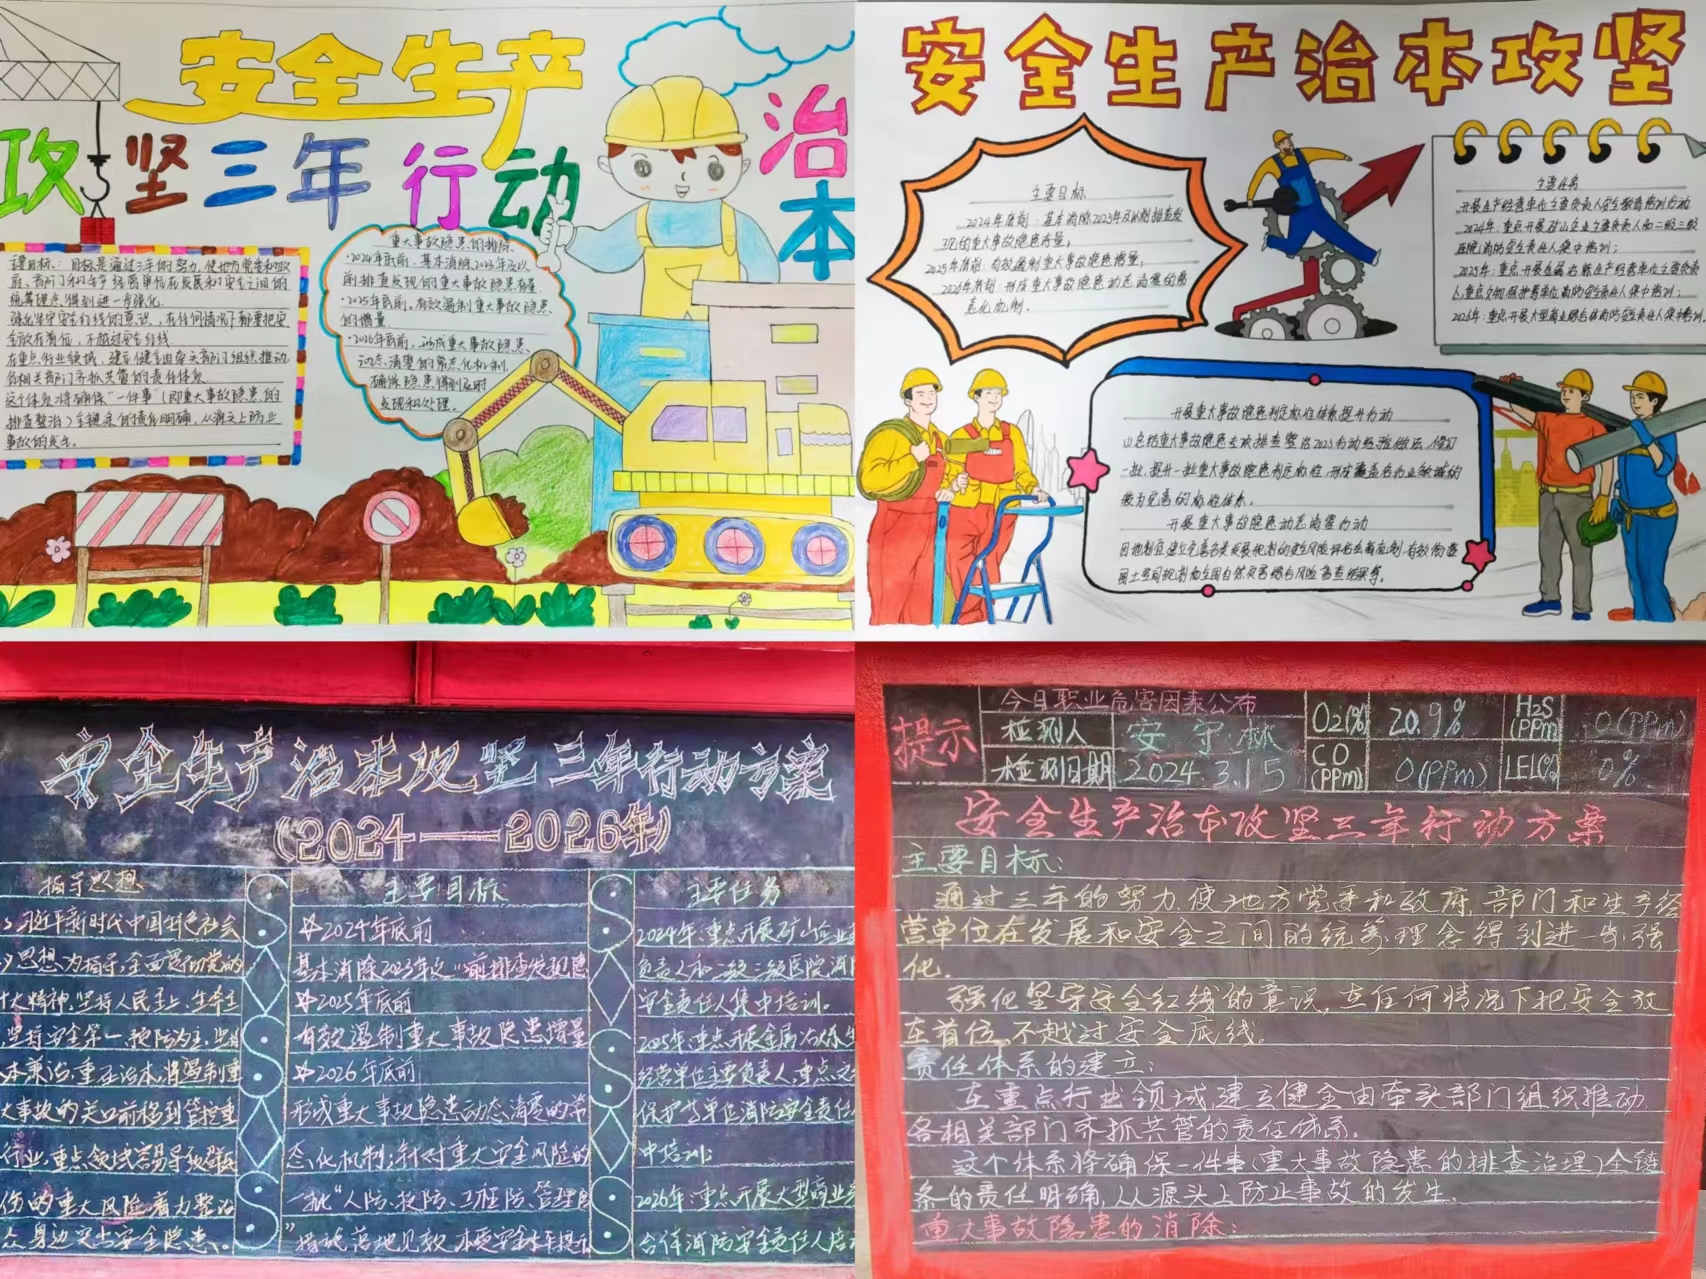 安全生产
治本
攻坚三年行动
重大事故隐患的排除
·2024年底前,基本消除2023年及以
前排查发现的重大事故隐患存量
·2025年底前,有效遏制重大事故隐患
的增量
·2026年底前,形成重大事故隐患
动态清零的常态化机制,
确保隐患得到及时
发现和处理。
主要目标:目标是通过三年的努力,使地方党委和政
府、部门和生产经营单位在发展和安全之间的
统筹理念得到进一步强化
强化坚守安全红线的意识,在任何情况下都要把安
全放在首位,不越过安全红线
在重点行业领域,建立健全由牵头部门组织推动
各相关部门齐抓共管的责任体系
这个体系将确保“一件事”(即重大事故隐患的
排查整治)全链条的责任明确,从源头上防止
事故的发生。
安全生产治本攻坚
主要目标
2024年底前:基本消除2023年及以前排查发
现的重大事故隐患存量;
2025年底前:有效遏制重大事故隐患增量;
2026年底前:形成重大事故隐患动态清零的常
态化机制.
主要任务
开展生产经营单位主要负责人安全教育培训行动
2024年:重点开展矿山企业主要负责人和二级三级
医院消防安全责任人集中培训;
2025年:重点开展金属冶炼生产经营单位主要负责
人,重点文物保护单位消防安全责任人集中培训;
2026年:重点开展大型商业综合体消防安全责任人集中培训.
开展重大事故隐患判定标准体系提升行动
总结重大事故隐患专项排查整治2023行动经验做法,修订
一批,提升一批重大事故隐患判定标准,形成覆盖各行业领域的
较为完善的标准体系.
开展重大事故隐患动态清零行动
安全生产治本攻坚三年行动方案
(2024——2026年)
指导思想
习近平新时代中国特色社会
义思想为指导,全面贯彻党的
十大精神,坚持人民至上、生命至
坚持安全第一、预防为主,坚持
本兼治,重在治本,将遏制重
大事故的关口前移到管控重
行业,重点领域容易导致群死
伤的重大风险,着力整治
众身边突出安全隐患。
主要目标
2024年底前
基本消除2023年及以前排查发现隐
2025年底前
有效遏制重大事故隐患增量
2026年底前
形成重大事故隐患动态清零的常
态化机制;针对重大安全风险的
一批“人防、技防、工程防、管理防
”措施落地见效,本质安全水平提
主要任务
2024年:重点开展矿山企业
负责人和二级三级医院消防
安全责任人集中培训。
2025年:重点开展金属冶炼生
经营单位主要负责人,重点文
保护等单位消防安全责任
中培训;
2026年:重点开展大型商业
合体消防安全责任人培
提示
今日职业危害因素公布
检测人 安守林
检测日期 2024.3.15
O2(%) 20.9% H2S(PPm) 0(PPm)
CO(PPm) 0(PPm) LEL(% 0%
安全生产治本攻坚三年行动方案
主要目标:
通过三年的努力,使地方党委和政府,部门和生产经
营单位在发展和安全之间的统筹理念得到进一步强
化.
强化坚守安全红线的意识,在任何情况下把安全放
在首位,不越过安全底线.
责任体系的建立:
在重点行业领域建立健全由牵头部门组织推动,
各相关部门齐抓共管的责任体系.
这个体系将确保一件事(重大事故隐患的排查治理)全链
条的责任明确,从源头上防止事故的发生.
重大事故隐患的消除: